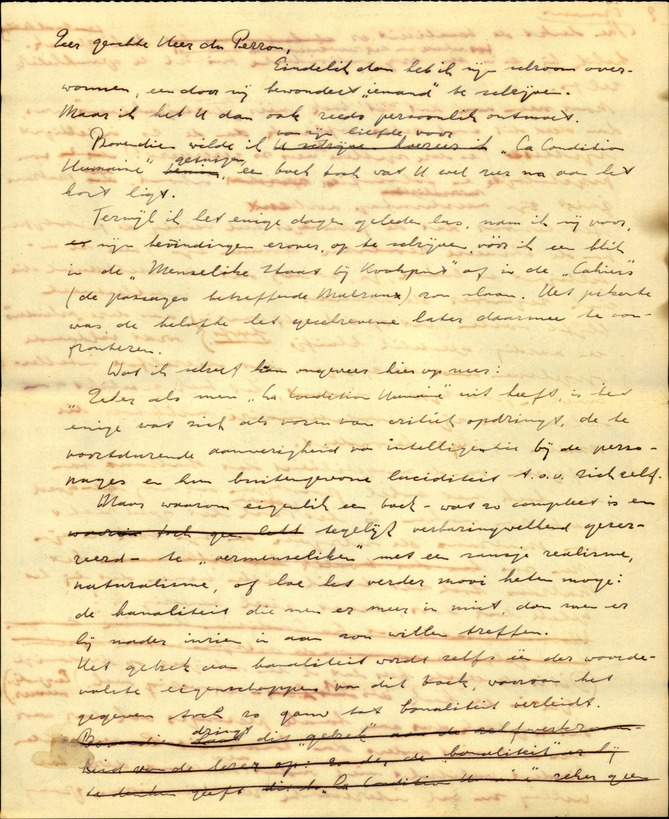 Zeer geachte Heer du Perron,
Eindelik dan heb ik mijn schroom over-
wonnen, een door mij bewonderd "iemand" te schrijven.
Maar ik heb U dan ook reeds persoonlik ontmoet.
Bovendien wilde ik U schrijve hierover ik van mijn liefde voor "La Condition
Humaine" getuigen, een boek toch wat U wel zeer na aan het
hart ligt.
Terwijl ik het enige dagen geleden las, nam ik mij voor,
er mijn bevindingen erover, op te schrijven, vóór ik een blik
in de "Menselike Staat bij Kookpunt" of in de "Cahiers"
(de passages betreffende Malraux) zou slaan. Het pikante
was, de belofte het geschrevene later daarmee te con-
fronteren.
Wat ik schreef kwam ongeveer hierop neer:
"Ieder als men "La Condition Humaine" uit heeft, is het
"enige wat zich als vorm van critiek opdringt, de te
voortdurende aanwezigheid van intelligentie bij de perso-
nages en hun buitengewone luciditeit t.o.v. zichzelf.
Maar waarom eigenlik een boek - wat zo compleet is en
waarin toch geen tegelijk verbazingwekkend geser-
reerd - te "vermenseliken" met een sausje realisme,
naturalisme, of hoe het verder mooi heten moge:
de banaliteit die men er meer in mist, dan men er
bij nader inzien in aan zou willen treffen.
Het gebrek aan banaliteit wordt zelfs één der waarde-
volste eigenschappen van dit boek, waarvan het
gegeven toch zo gauw tot banaliteit verleidt.
Bovendien dringt dit "gebrek" aan de zelfwerkzaam-
heid van de lezer op: zonder de "banaliteit" er bij
te denken geeft dit de "La Condition Humaine" zeker geen